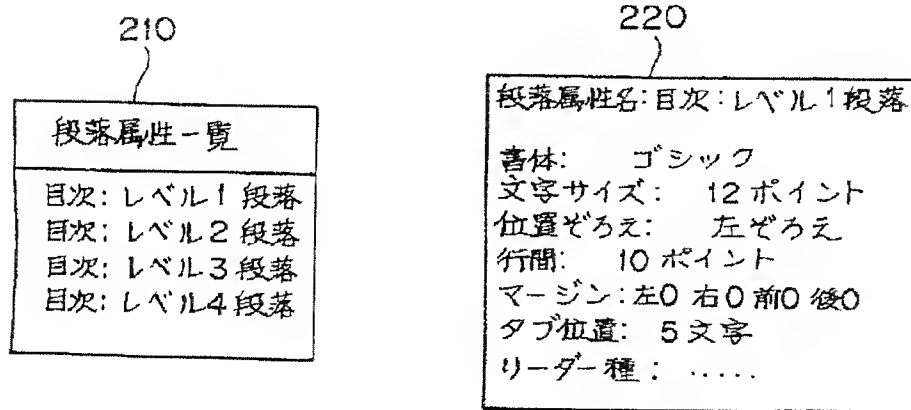 210
段落属性一覧
目次:レベル1段落
目次:レベル2段落
目次:レベル3段落
目次:レベル4段落
220
段落属性名:目次:レベル1段落
書体: ゴシック
文字サイズ: 12ポイント
位置ぞろえ: 左ぞろえ
行間: 10ポイント
マージン:左0 右0 前0 後0
タブ位置: 5文字
リーダー種: .....